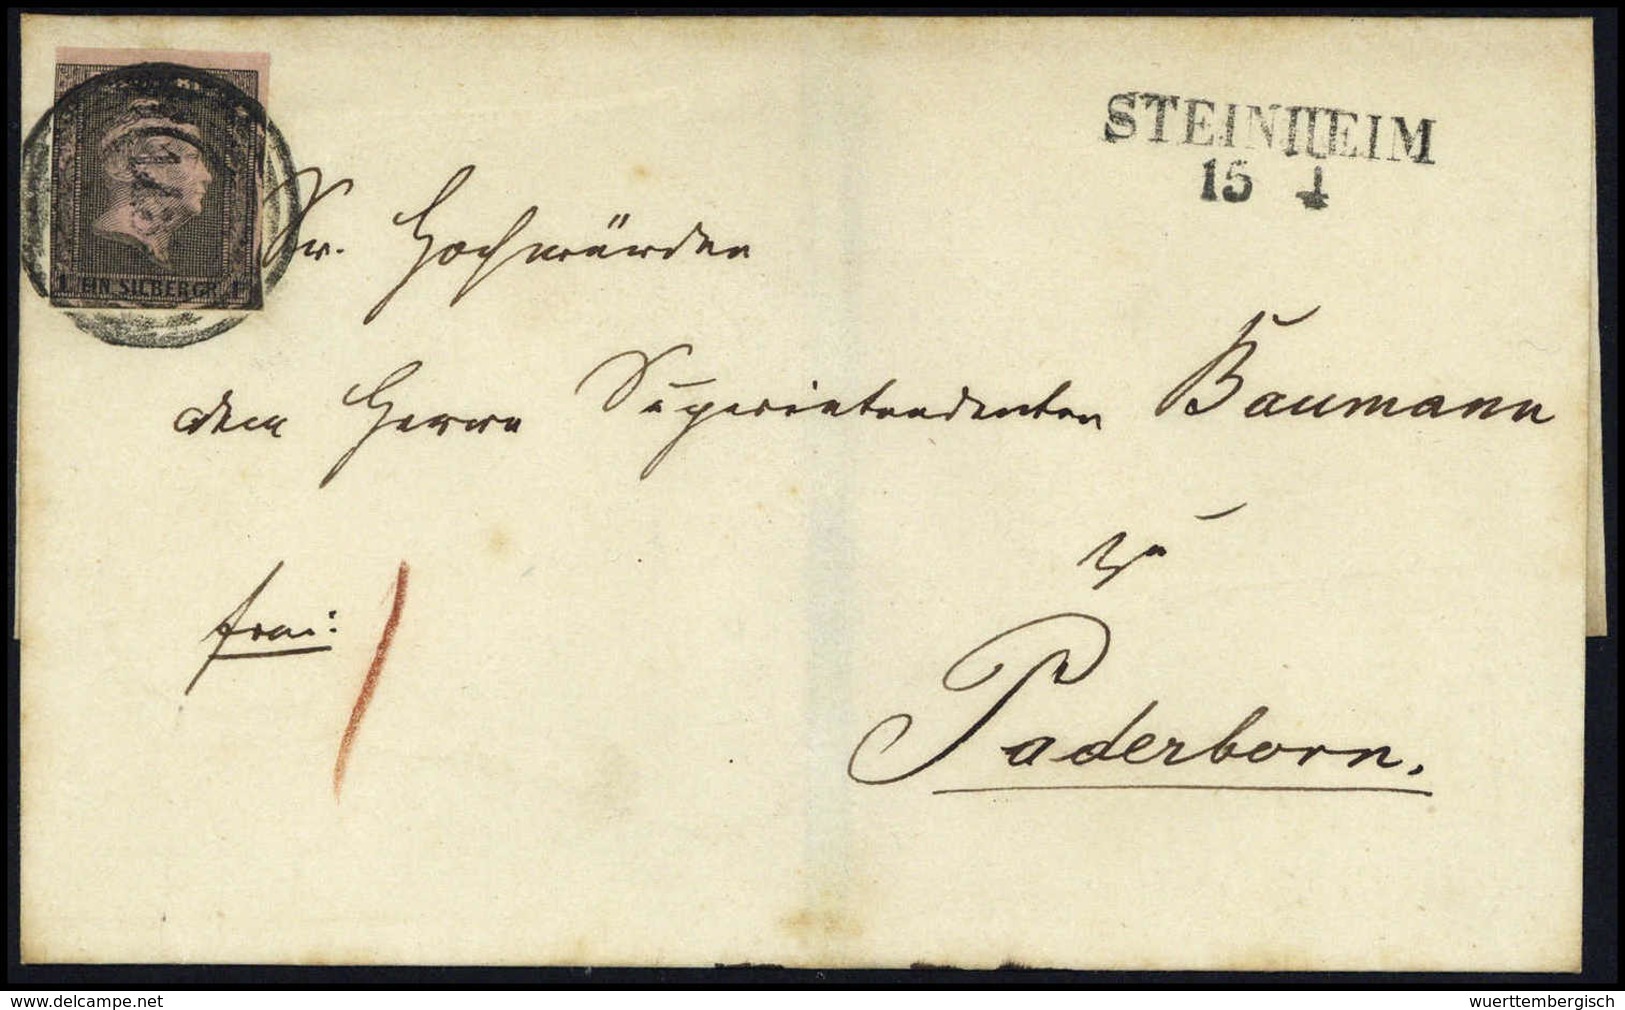 STEINHEIM
15 4
1 EIN SILBERGR. 1
Sr. Hochwürden
dem Herrn Superintendenten Baumann
zu
frei:
Paderborn.
www.delcampe.net
wuerttembergisch